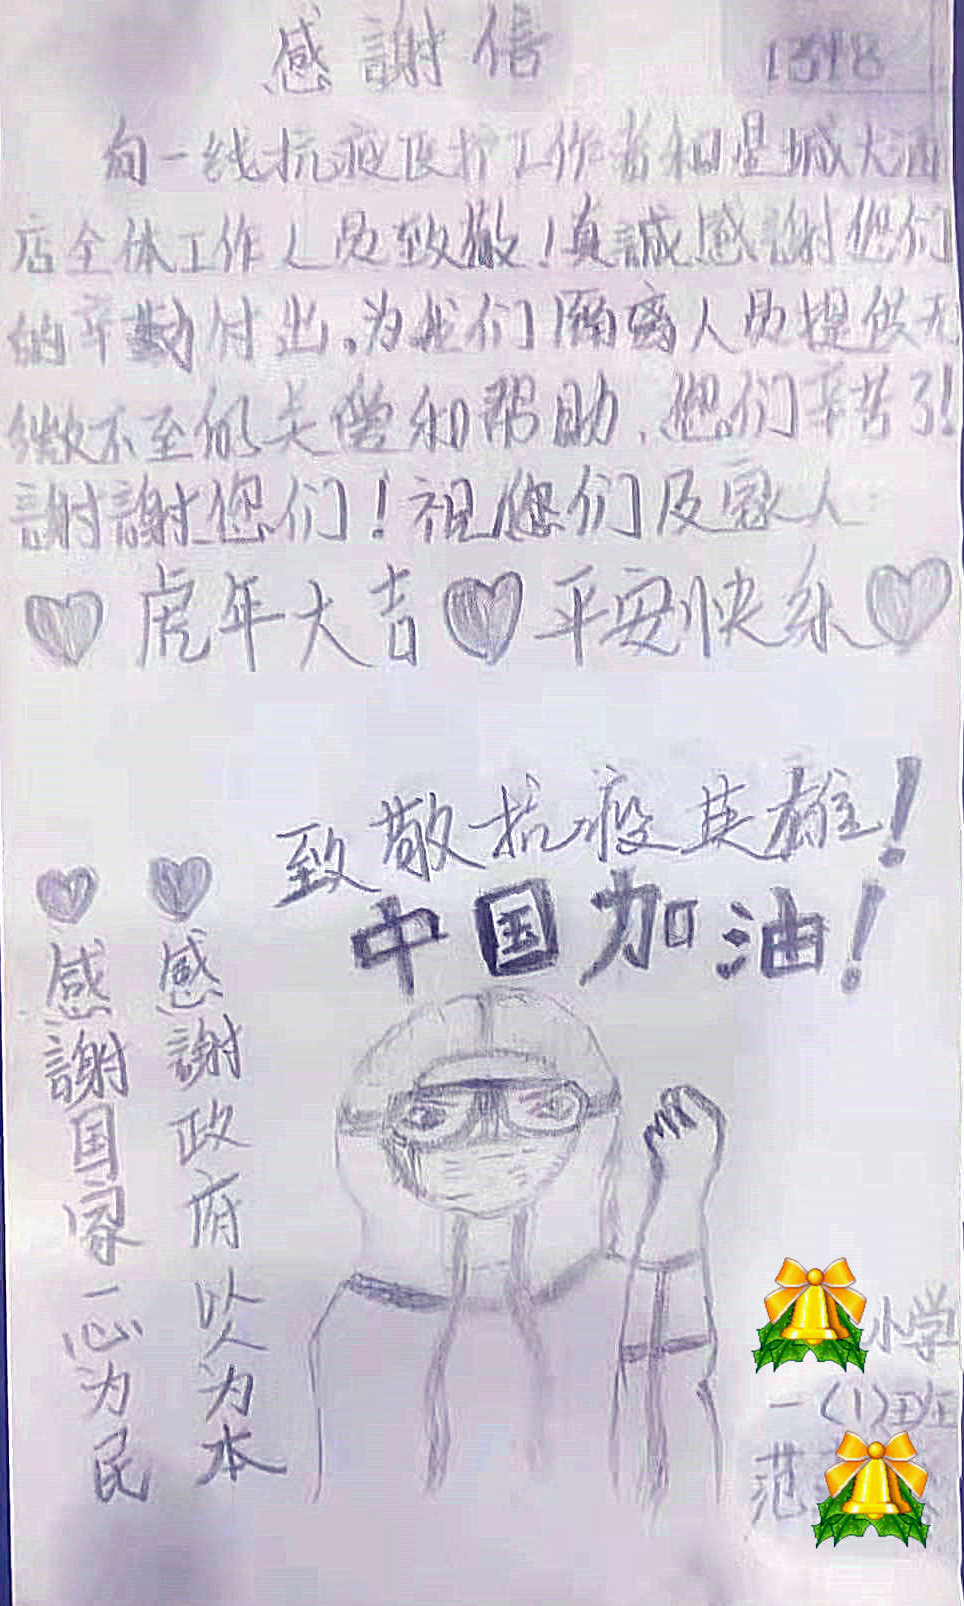 感謝信
1318
向一线抗疫医护工作者和星城大酒
店全体工作人员致敬!真誠感謝您们
的辛勤付出,为我们隔离人员提供无
微不至的关爱和帮助,您们辛苦了!
謝謝您们!祝您们及家人
虎年大吉 平安快乐
致敬抗疫英雄!
中国加油!
感謝国家一心为民
感謝政府以人为本
小学
一(1)班
范